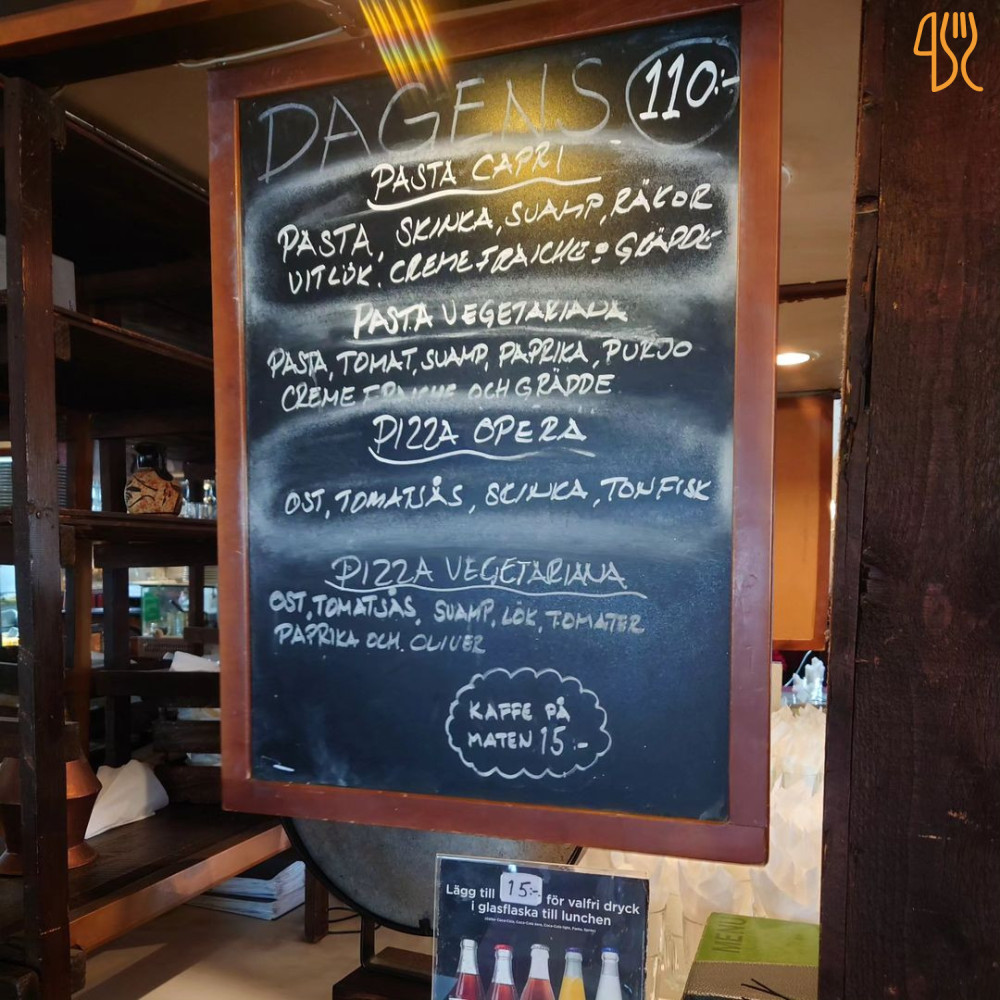 DAGENS 110:-
PASTA CAPRI
PASTA, SKINKA, SVAMP, RÄKOR
VITLÖK. CREME FRAICHE o GRÄDDE
PASTA VEGETARIANA
PASTA, TOMAT, SVAMP, PAPRIKA, PURJO
CREME FRAICHE OCH GRÄDDE
PIZZA OPERA
OST, TOMATSÅS, SKINKA, TONFISK
PIZZA VEGETARIANA
OST, TOMATSÅS, SVAMP, LÖK, TOMATER
PAPRIKA OCH OLIVER
KAFFE PÅ
MATEN 15:-
Lägg till 15:- för valfri dryck
i glasflaska till lunchen
MENU